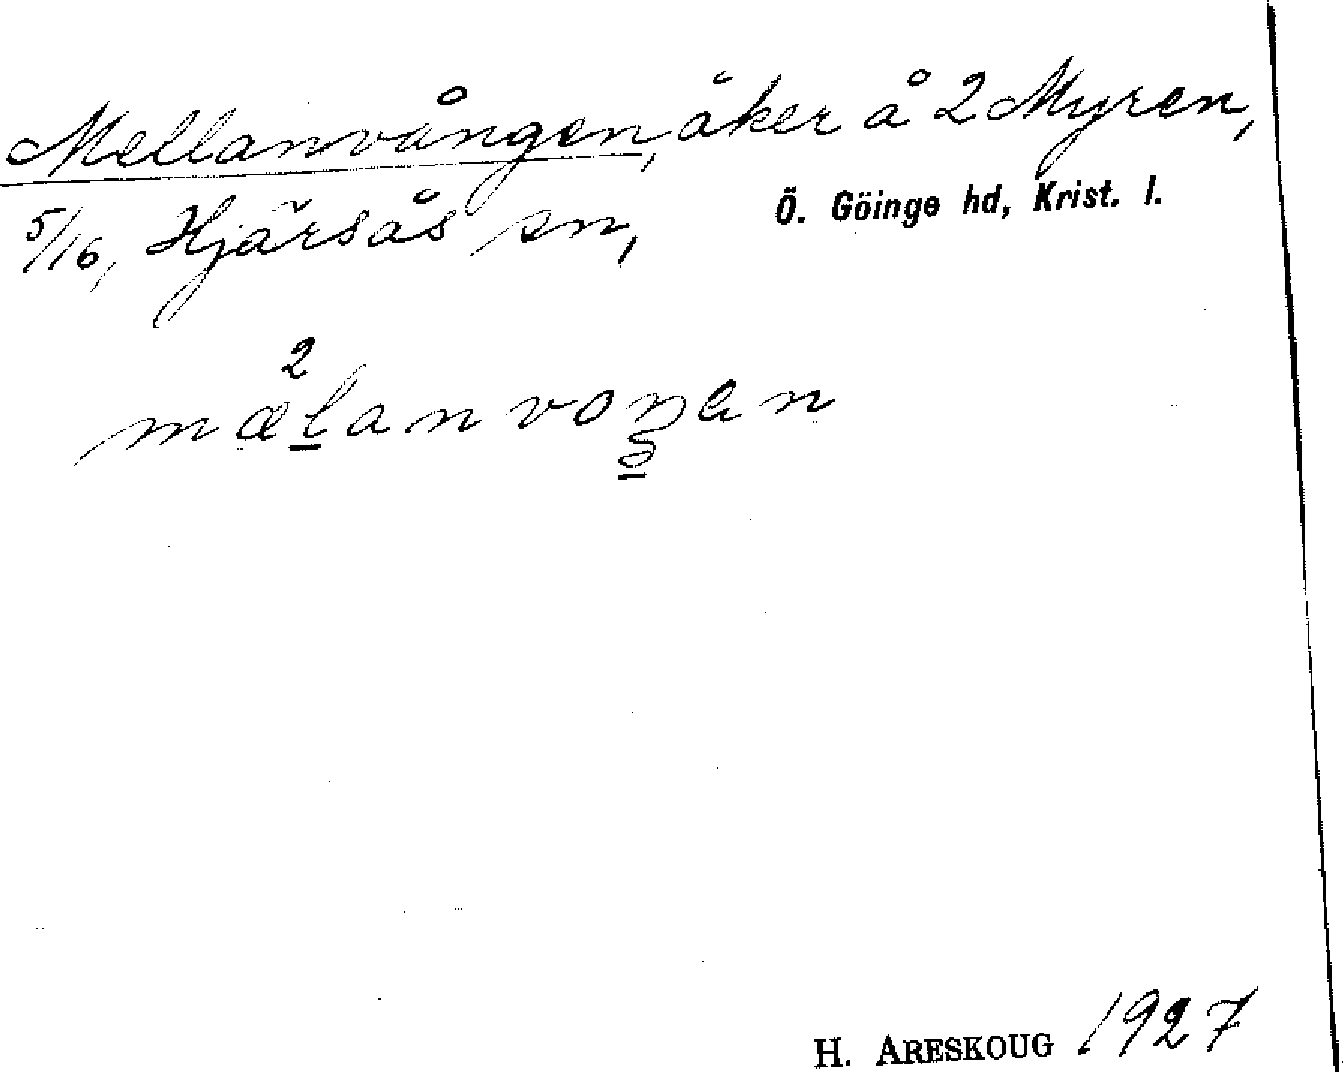 Mellanvången, åker å 2 Myren,
5/16, Hjärsås sn, Ö. Göinge hd, Krist. l.
2
mælanvoŋan
H. ARESKOUG 1927